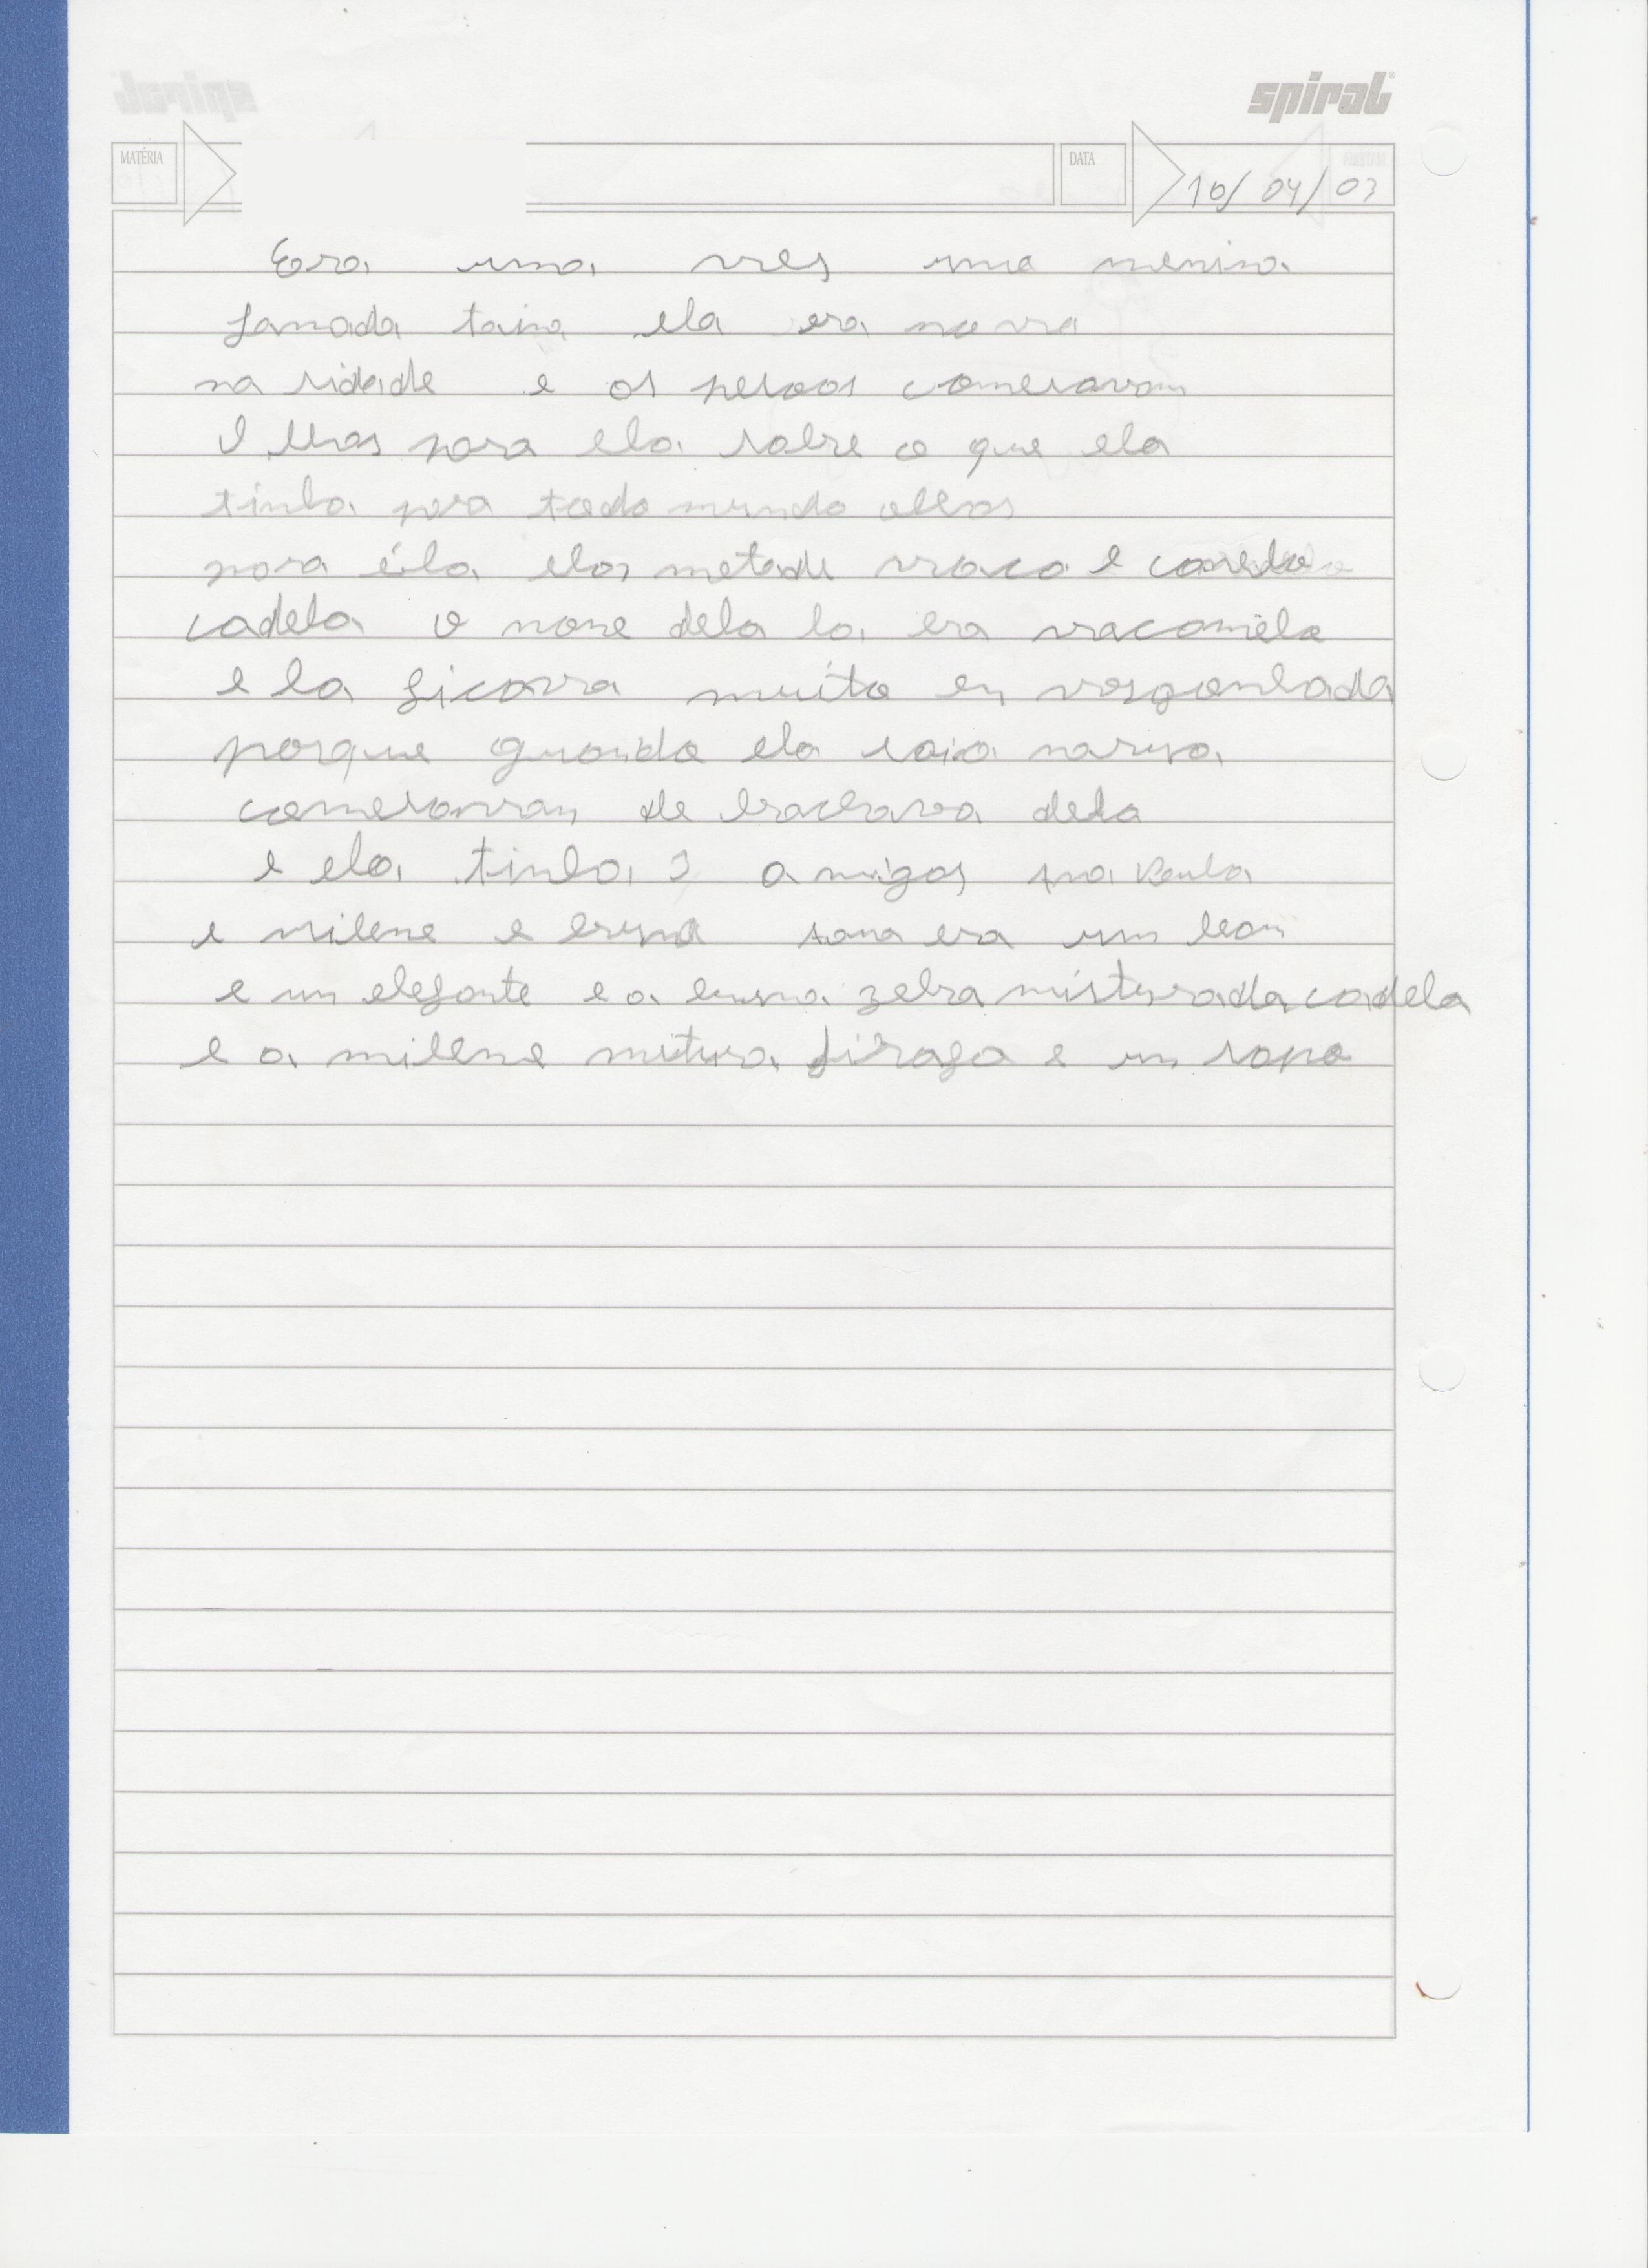 spiral
MATÉRIA DATA 10/04/03
Era uma ves uma menina
jamada taina ela era nova
na sidade e as pesoas comesavam
O lhas para ela sobre o que ela
tinha para todo mundo olhas
para éla elas metade vaca e
cadela o nome dela la era vacamela
e la ficava muito en vergonhada
porque quando ela saia narua
comesavam de bachava dela
e ela tinha 3 amigas Ana Paula
e milene e bruna Aana era um leon
e um elefante e a bruna zebra misturada cadela
e a milene mistura jirafa e um sapo